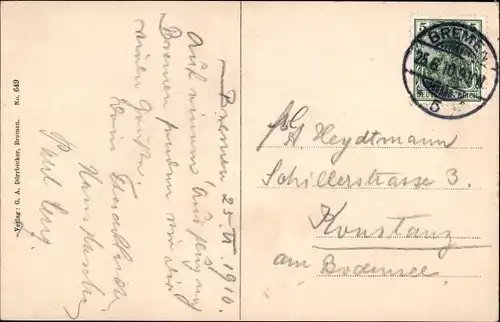 Verlag: G. A. Dierbecker, Bremen. No. 649
Bremen 25. VI. 1910.
Auf einem Ausflug nach
Bremen senden wir Dir
einen Gruß.
Dein
Hans
Paul
5 5
BREMEN
25.6.10
DEUTSCHES REICH
5
Heydtmann
Schillerstrasse 3.
Konstanz
am Bodensee